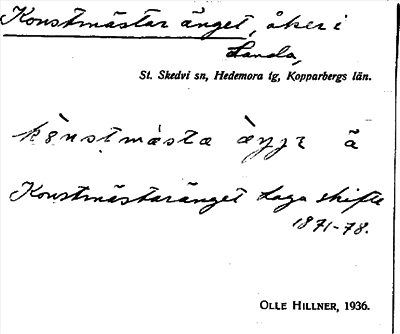 Konstmästar änget, åker i
Landa,
St. Skedvi sn, Hedemora tg, Kopparbergs län.
Konstmästaränget Laga skifte
1871-78.
OLLE HILLNER, 1936.